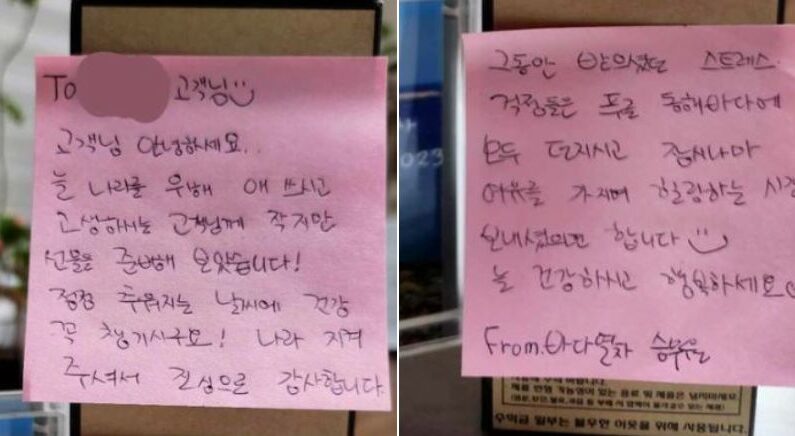 To 고객님
고객님 안녕하세요..
늘 나라를 위해 애 쓰시고
고생하시는 고객님께 작지만
선물을 준비해 보았습니다!
점점 추워지는 날씨에 건강
꼭 챙기시구요! 나라 지켜
주셔서 진심으로 감사합니다.
그동안 받으셨던 스트레스.
걱정들은 푸른 동해바다에
모두 던지시고 잠시나마
여유를 가지며 힐링하는 시간
보내셨으면 합니다
늘 건강하시고 행복하세요
From.바다열차 승무원
2023
제품 변형 가능성이 있는 음료 및 제품은 넣지마세요.
수익금 일부는 불우한 이웃을 위해 사용됩니다.